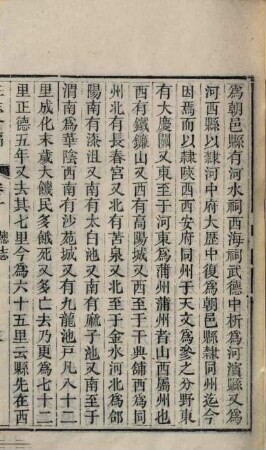 為朝邑縣有河水祠西海祠武德中析為河濱縣又為
河西縣以隸河中府大歷中復為朝邑縣隸同州迄今
因焉而以隸陝西西安府同州于天文為參之分野東
有大慶關又東至于河東為蒲州蒲州者山西屬州也
西有鐵鐮山又西有高陽城又西至于干興舖西為同
州北有長春宮又北有苦泉又北至于金水河北為郃
陽南有漆沮又南有太白池又南有麻子池又南至于
渭南為華陰西南有沙苑城又有九龍池戸凡八十二
里成化末歲大饑民多餓死又多亡去乃更為七十二
里正德五年又去其七里今為六十五里云縣先在西
總志